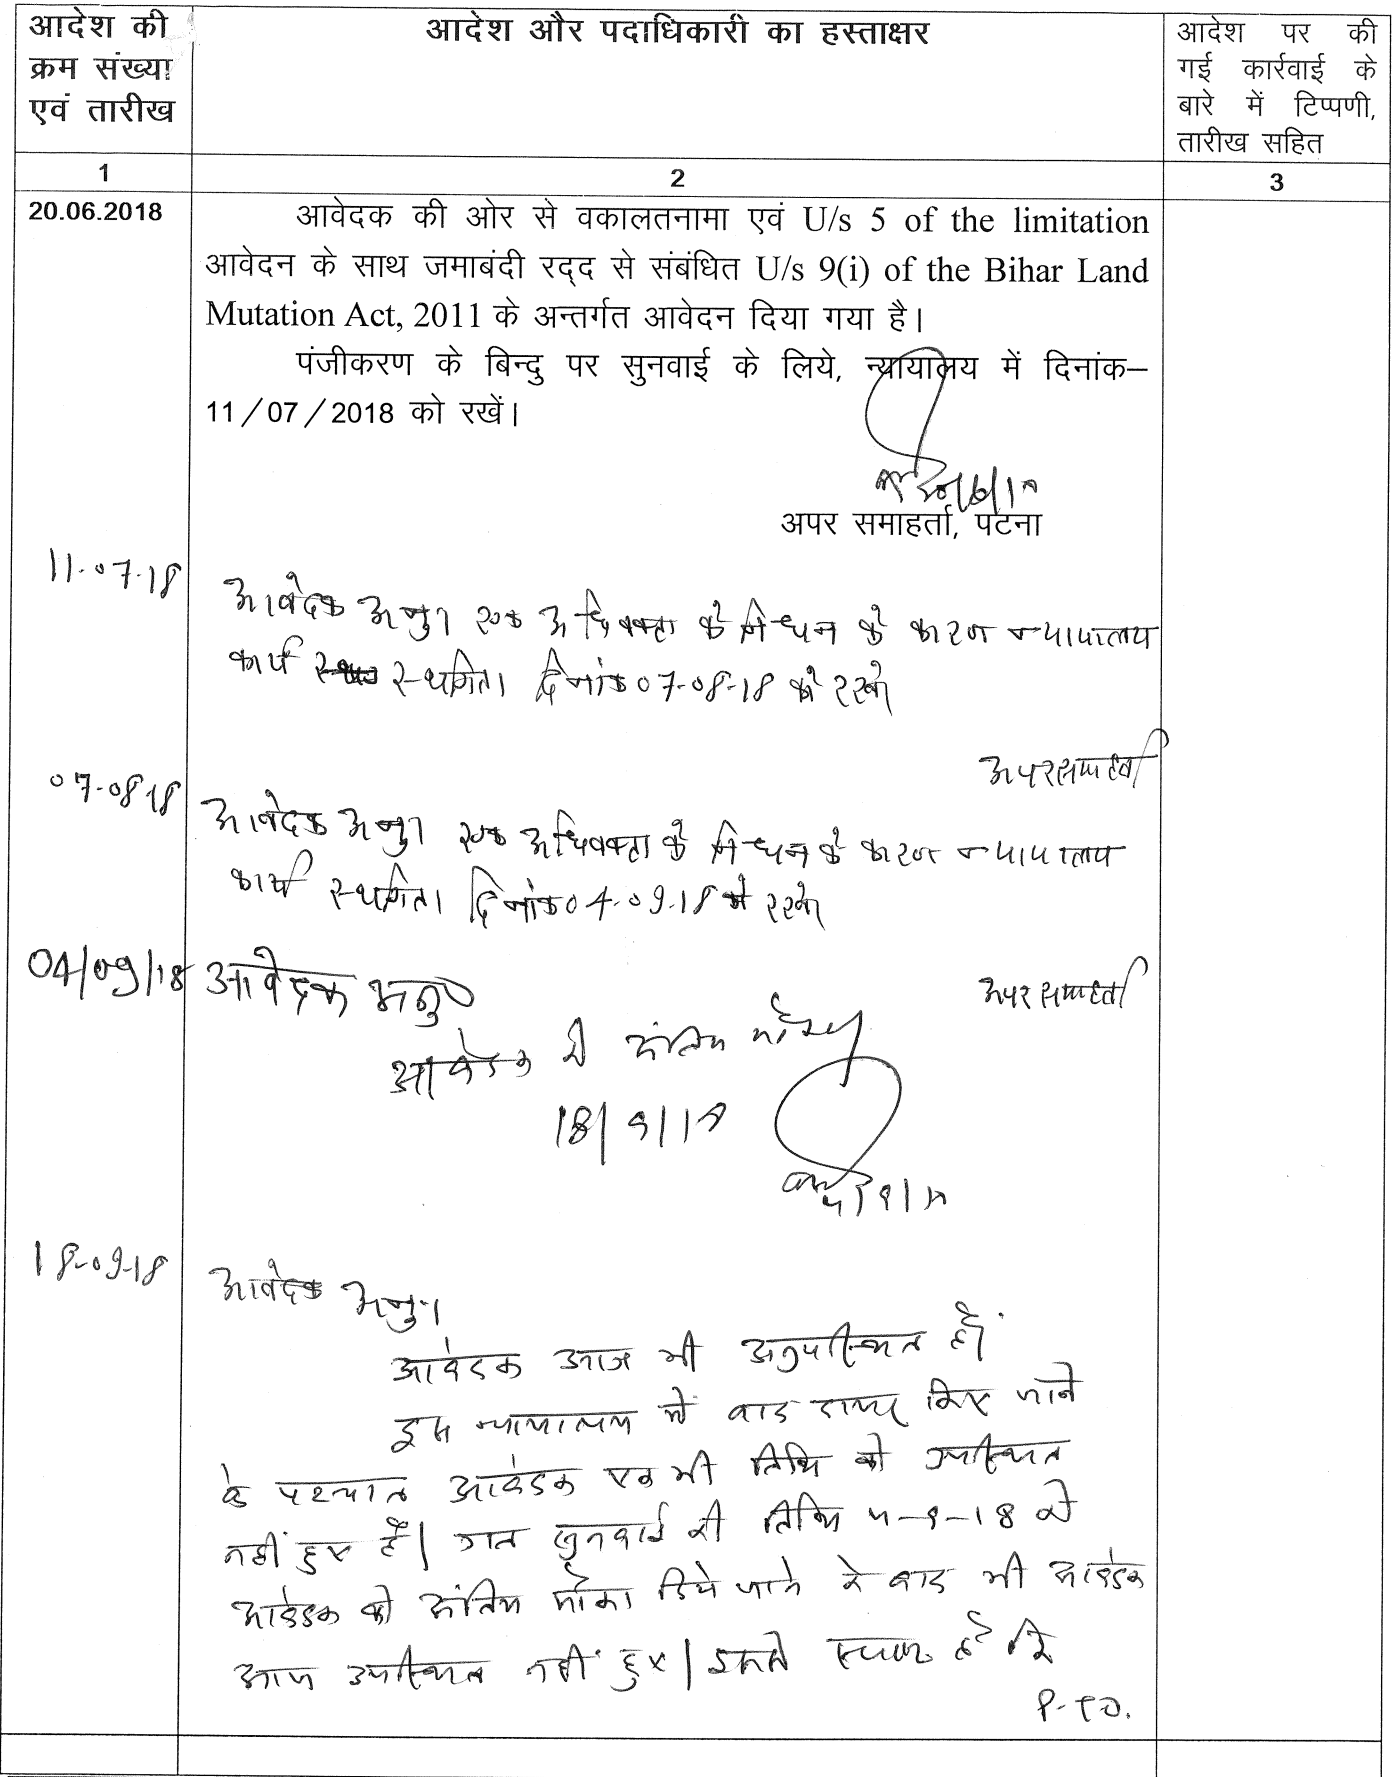 आदेश की
क्रम संख्या
एवं तारीख
आदेश और पदाधिकारी का हस्ताक्षर
आदेश पर की
गई कार्रवाई के
बारे में टिप्पणी,
तारीख सहित
1
2
3
20.06.2018
आवेदक की ओर से वकालतनामा एवं U/s 5 of the limitation
आवेदन के साथ जमाबंदी रद्द से संबंधित U/s 9(i) of the Bihar Land
Mutation Act, 2011 के अन्तर्गत आवेदन दिया गया है।
पंजीकरण के बिन्दु पर सुनवाई के लिये, न्यायालय में दिनांक–
11/07/2018 को रखें।
अपर समाहर्ता, पटना
11-07-18
आवेदक अनु। एक अधिवक्ता के निधन के कारण न्यायालय
कार्य स्थगित। दिनांक 07-08-18 को रखें
अपर समाहर्ता
07-08-18
आवेदक अनु। एक अधिवक्ता के निधन के कारण न्यायालय
कार्य स्थगित। दिनांक 04-09-18 को रखें
अपर समाहर्ता
04/09/18
आवेदक अनु०
आवेदक को अंतिम मौका
18/9/18
18-09-18
आवेदक अनु०।
आवेदक आज भी अनुपस्थित हैं।
इस न्यायालय में वाद दायर किए जाने
के पश्चात आवेदक एक भी तिथि को उपस्थित
नहीं हुए हैं। गत सुनवाई की तिथि 4-9-18 को
आवेदक को अंतिम मौका दिये जाने के बाद भी आवेदक
आज उपस्थित नहीं हुए। इससे स्पष्ट है कि
P.T.O.